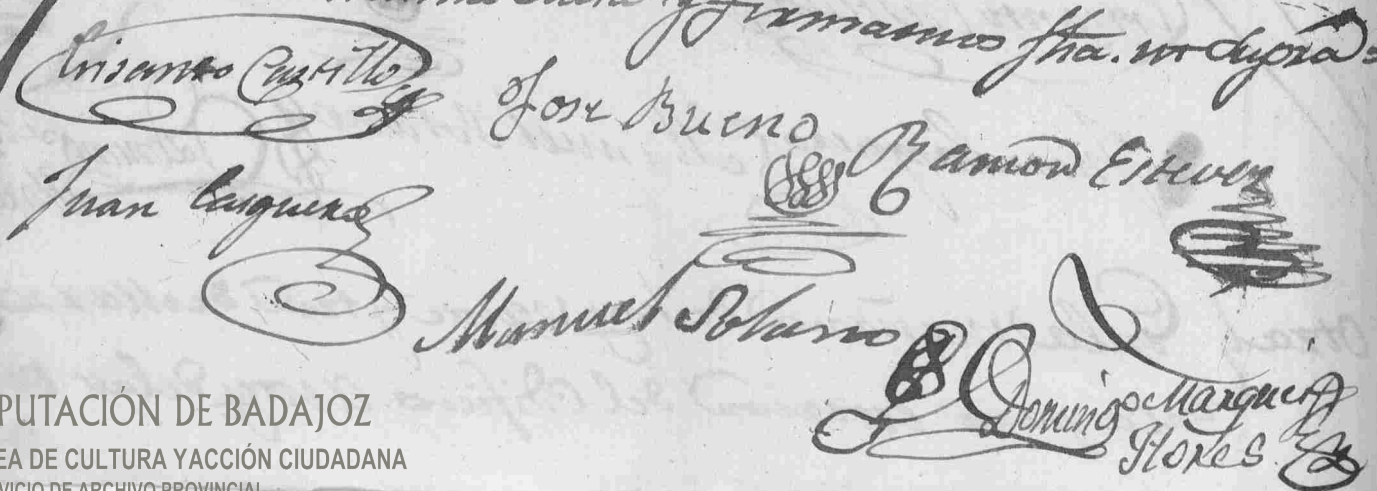 y firmamos fha. ut supra =
Crisanto Castillo
Jose Bueno
Ramon Estevez
Juan Casquero
Manuel Solano
Domingo Marquez
Flores
PUTACIÓN DE BADAJOZ
EA DE CULTURA YACCIÓN CIUDADANA
VICIO DE ARCHIVO PROVINCIAL